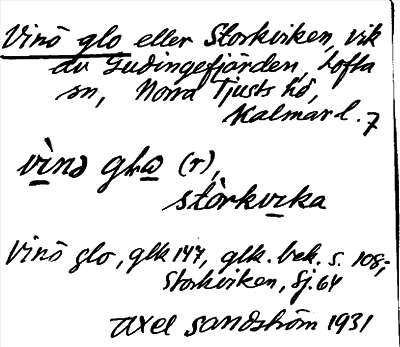 Vinö glo eller Storkviken, vik
av Gudingefjärden, Lofta
sn, Norra Tjusts hd,
Kalmar l. 7
vìnə glω (r),
stòrkvika
Vinö glo, glk 147, glk. bek. s. 108;
Storkviken, Sj. 64
Axel Sandström 1931